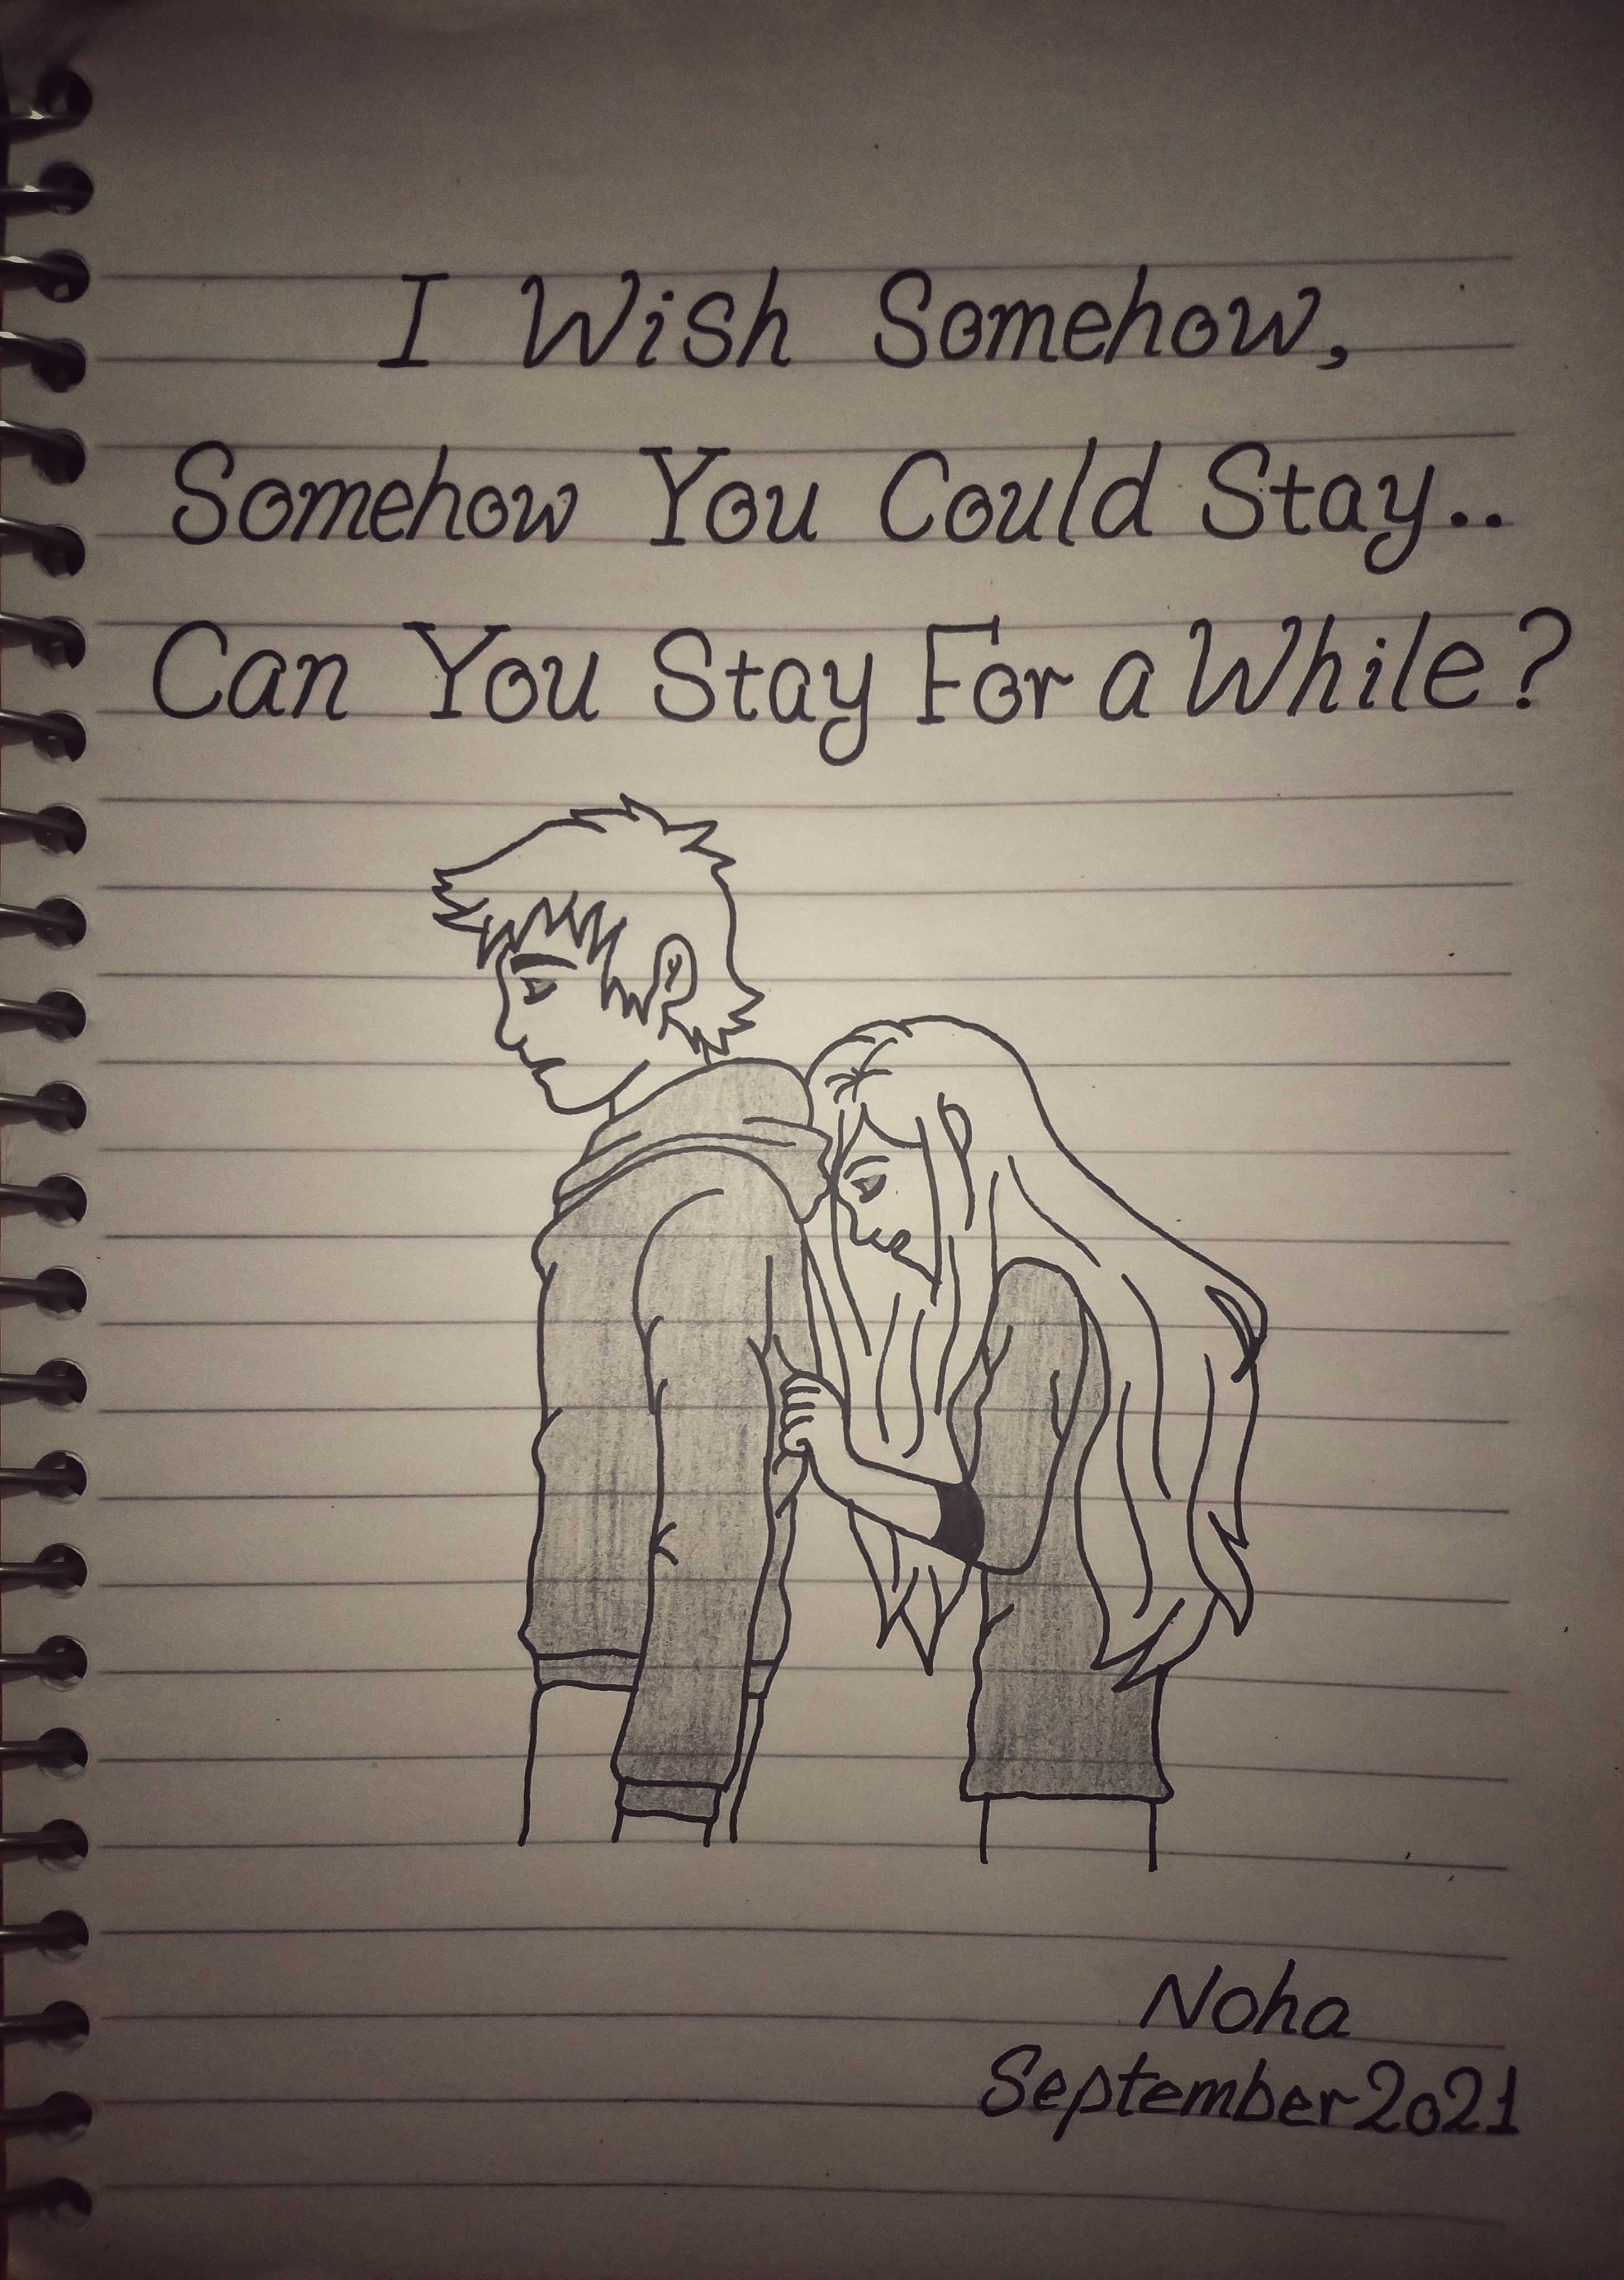 I Wish Somehow,
Somehow You Could Stay..
Can You Stay For a While?
Noha
September 2021